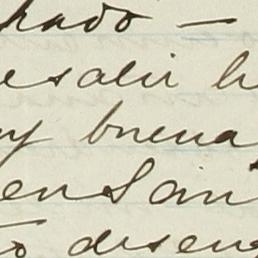 hado —
esalir h
y buena
en San
to diseng